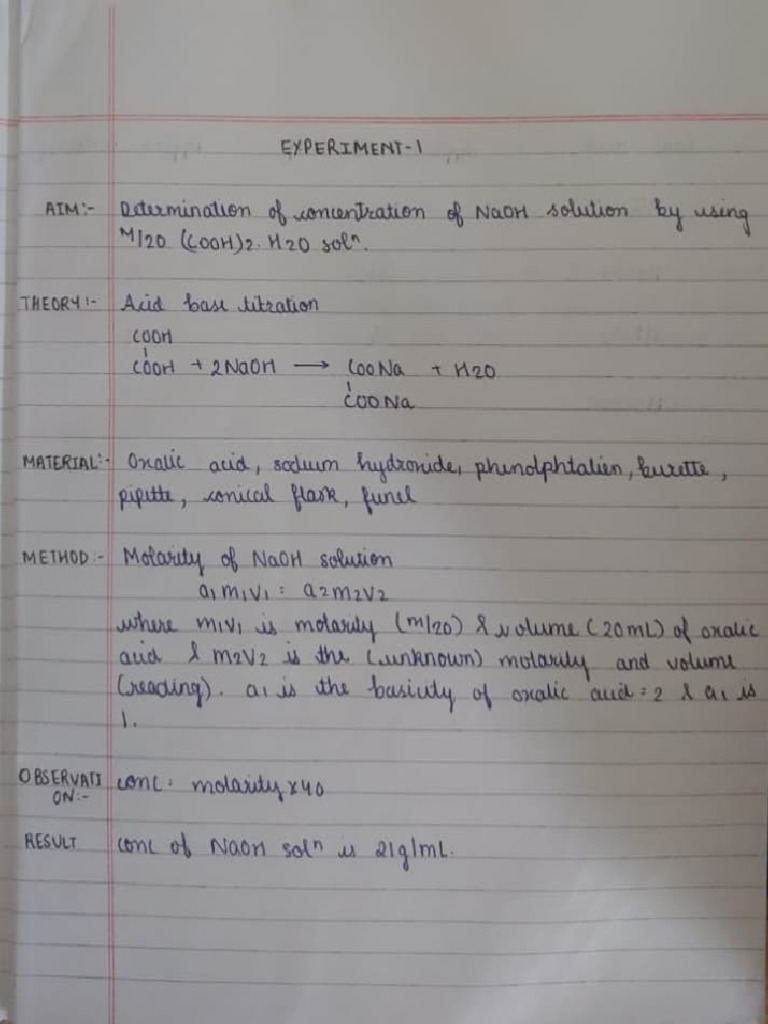 EXPERIMENT-1
AIM:- Determination of concentration of NaOH solution by using
M/20 (COOH)2.H2O solⁿ.
THEORY:- Acid base titration
COOH
COOH + 2NaOH → COONa + H2O
COONa
MATERIAL:- Oxalic acid, sodium hydroxide, phenolphtalien, burette,
pipitte, conical flask, funel
METHOD:- Molarity of NaOH solution
a1m1v1 = a2m2v2
where m1v1 is molarity (m/20) & volume (20mL) of oxalic
acid & m2v2 is the (unknown) molarity and volume
(reading). a1 is the basicity of oxalic acid = 2 & a1 is
1.
OBSERVATI conc = molarity x 40
ON:-
RESULT conc of NaOH solⁿ is 21g/mL.